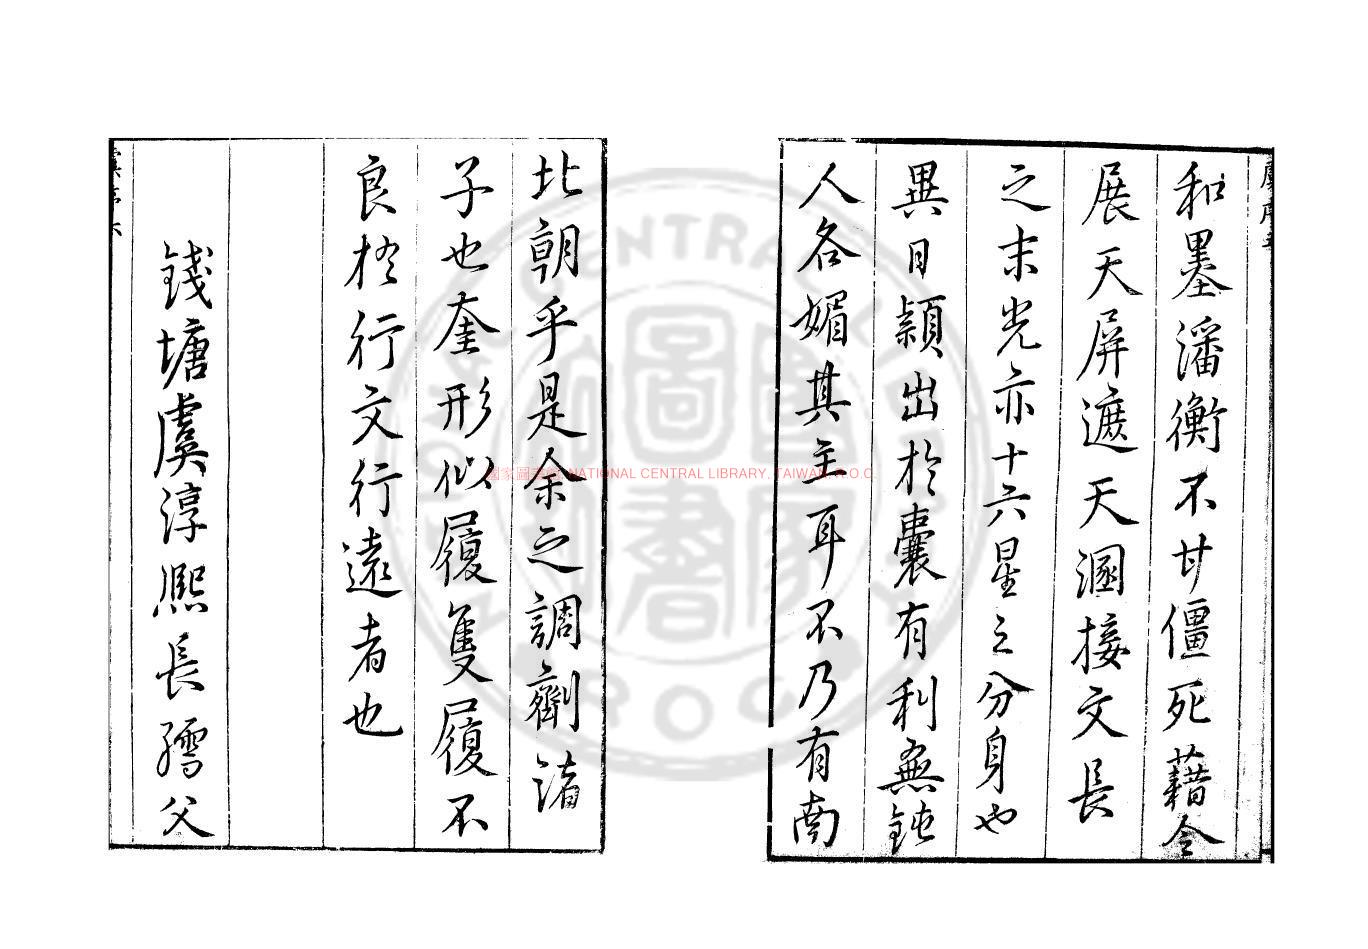 和墨潘衡不甘僵死藉令
展天屏遮天溷接文長
之末光亦十六星之分身也
異日穎出於囊有利無鈍
人各媚其主耳不乃有南
北朝乎是余之調劑諸
子也奎形似履隻履不
良於行文行遠者也
錢塘虞淳熙長孺父
虞序六
國家圖書館 NATIONAL CENTRAL LIBRARY, TAIWAN, R.O.C.